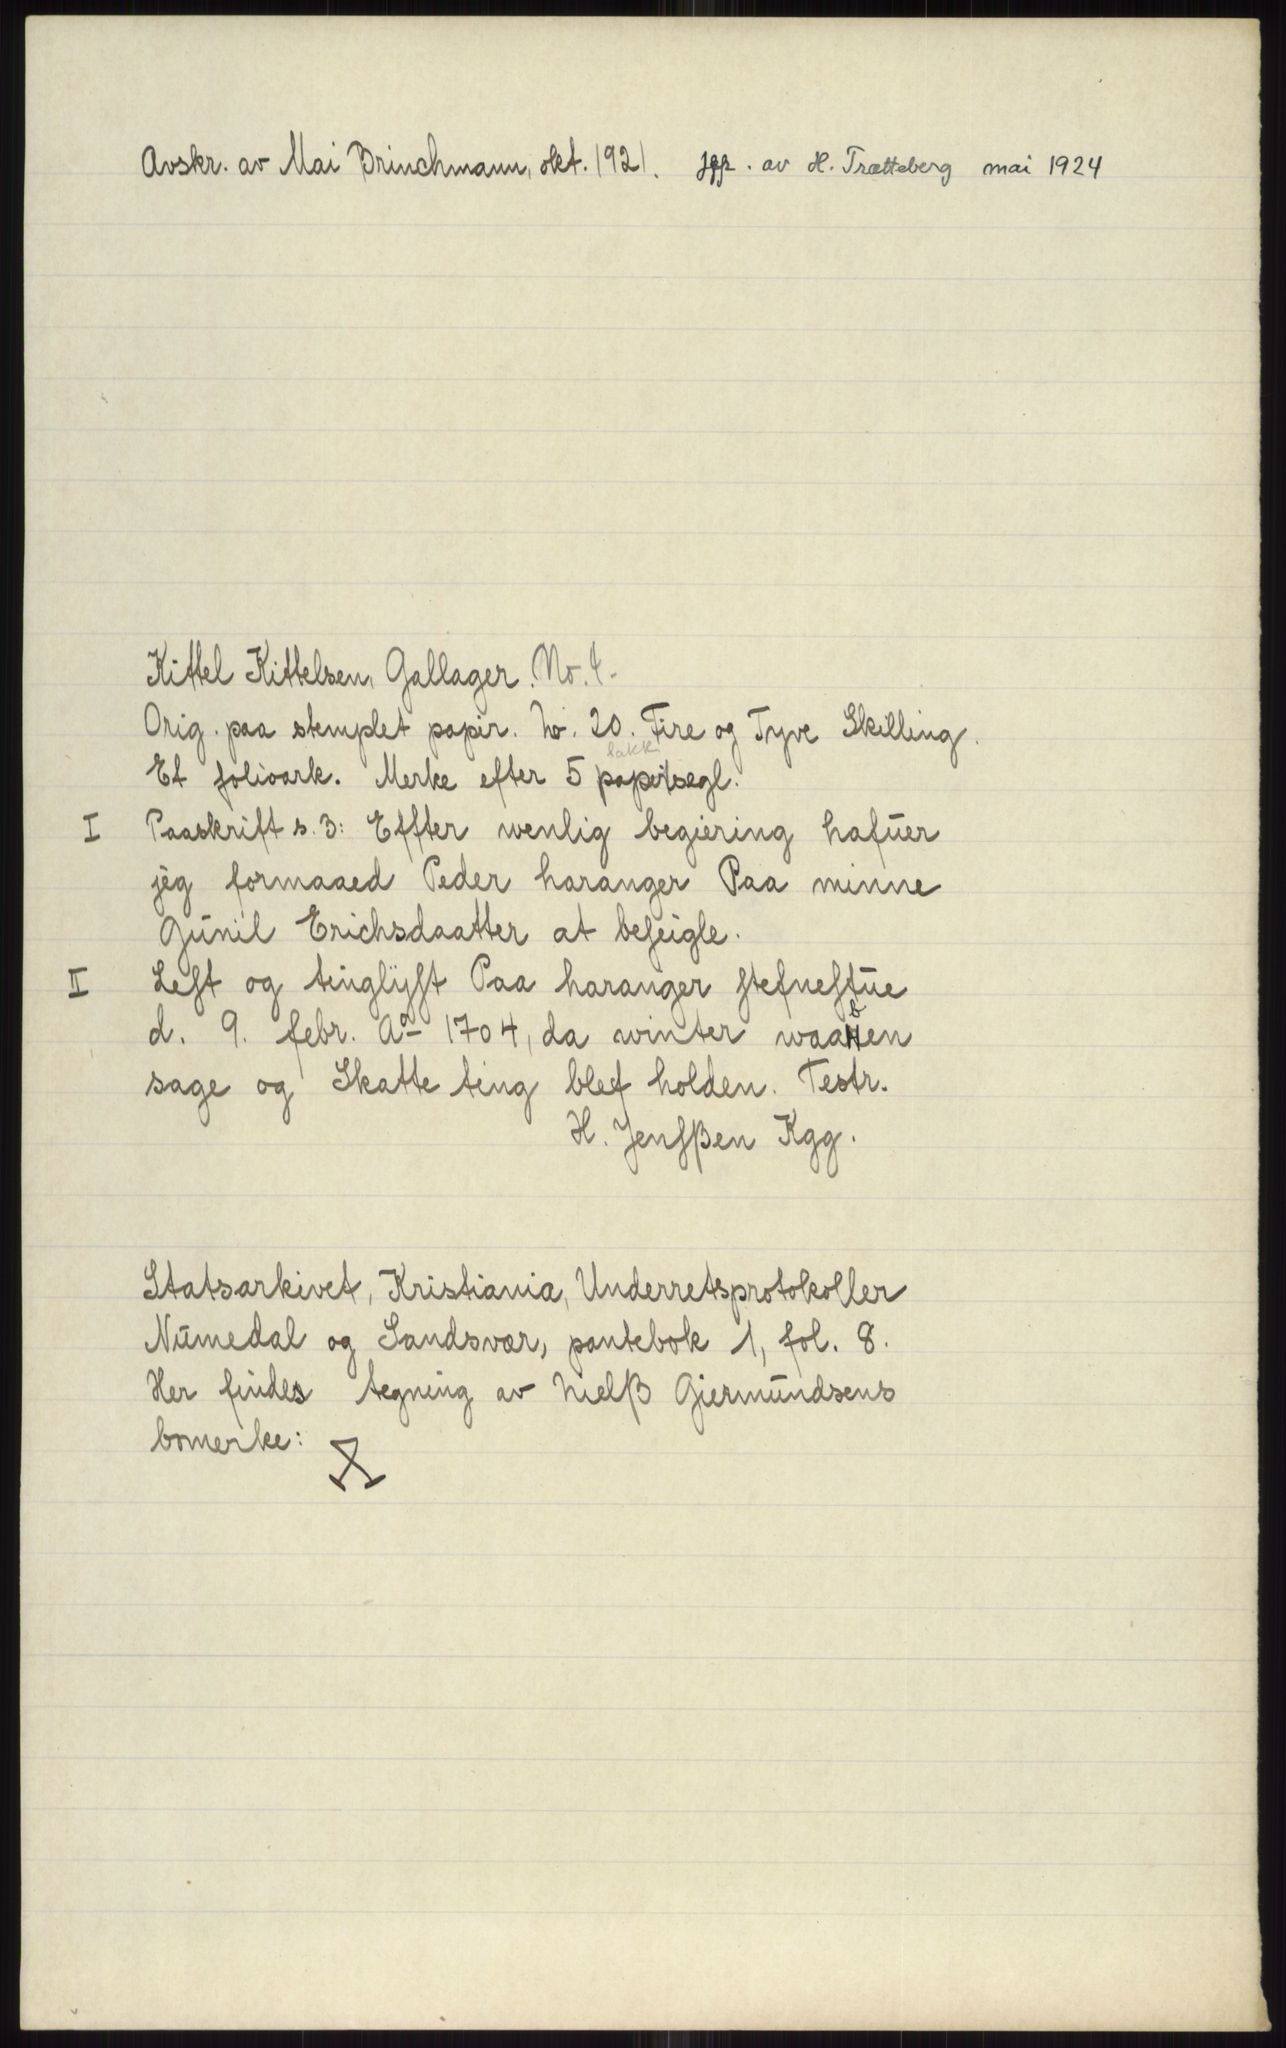 Avskr. av Mai Brinchmann, okt. 1921. jfr. av H. Trætteberg mai 1924
Kittel Kittelsen, Gallager. No. 4.
Orig. paa stemplet papir. No. 20. Fire og Tyve Skilling.
lakk
Et folioark. Merke efter 5 papirsegl.
I Paaskrift s. 3: Effter wenlig begiering hafuer
jeg formaaed Peder haranger Paa minne
Gunil Erichsdaatter at beseigle.
II Lest og tinglyst Paa haranger stefnestue
d. 9. febr. Ao 1704, da winter waaben
sage og Skatte ting blef holden. Testr.
H. Jensßen Kgg.
Statsarkivet, Kristiania, Underretsprotokoller
Numedal og Sandsvær, pantebok 1, fol. 8.
Her findes tegning av Nielß Giermundsens
bomerke: